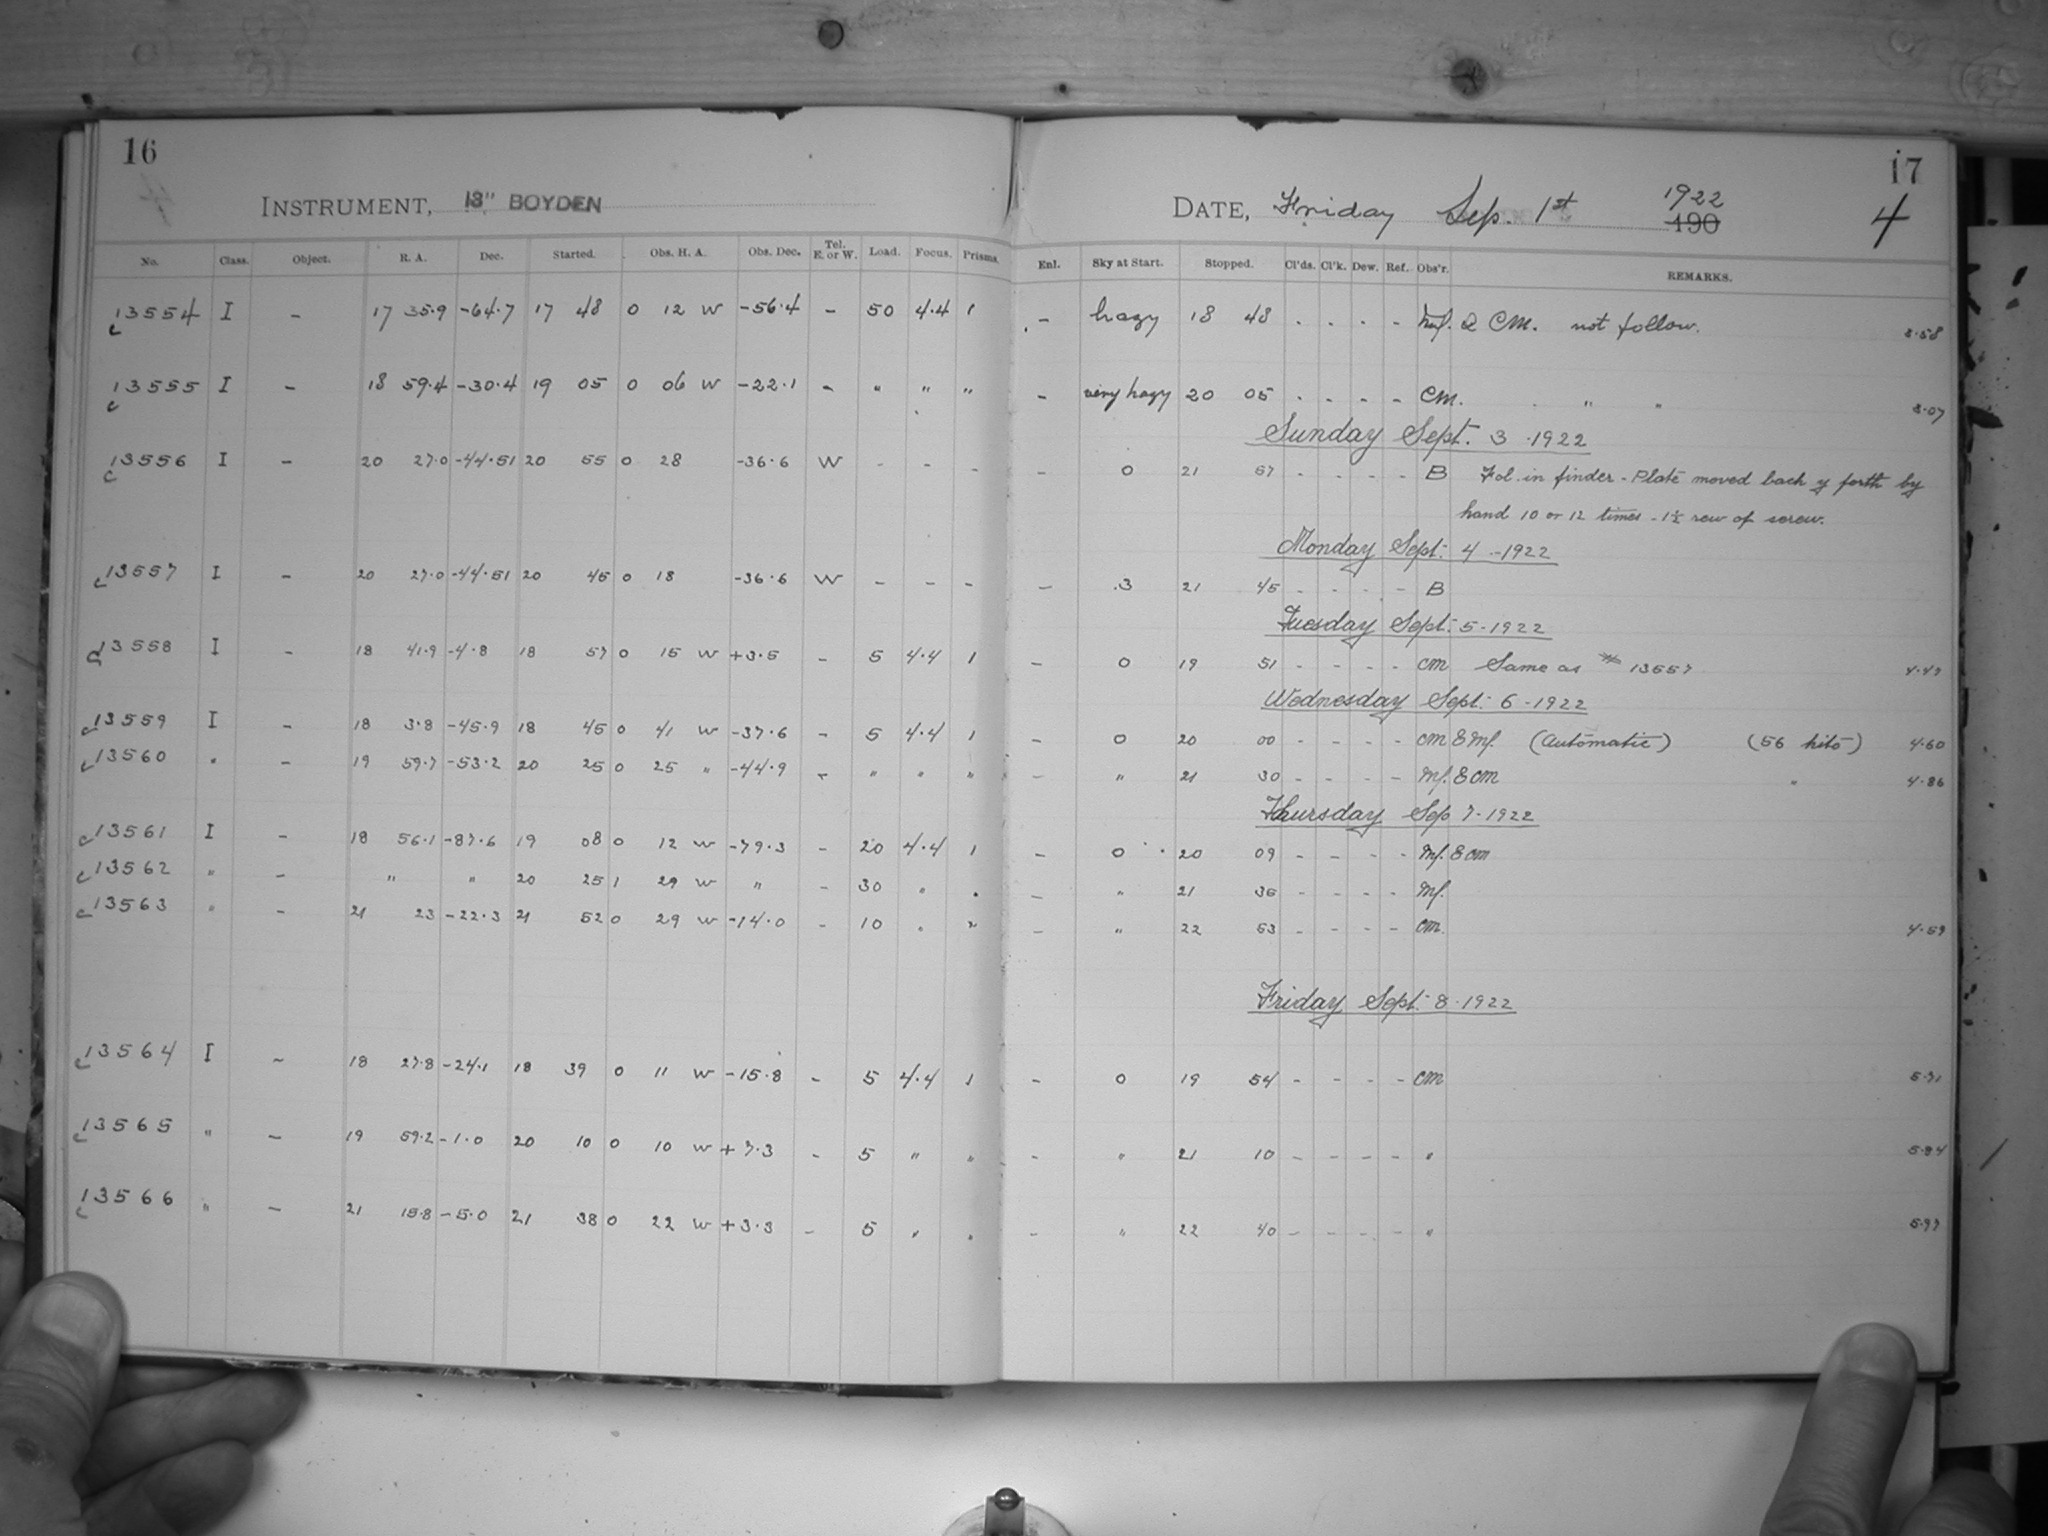 16
INSTRUMENT, 13" BOYDEN
No. Class. Object. R. A. Dec. Started. Obs. H. A. Obs. Dec. Tel. E. or W. Load. Focus. Prisms.
13554 I - 17 35.9 -64.7 17 48 0 12 W -56.4 - 50 4.4 1
13555 I - 18 59.4 -30.4 19 05 0 06 W -22.1 - " " "
13556 I - 20 27.0 -44.51 20 55 0 28 -36.6 W - - -
13557 I - 20 27.0 -44.51 20 45 0 18 -36.6 W - - -
13558 I - 18 41.9 -4.8 18 57 0 15 W +3.5 - 5 4.4 1
13559 I - 18 3.8 -45.9 18 45 0 41 W -37.6 - 5 4.4 1
13560 " - 19 59.7 -53.2 20 25 0 25 " -44.9 - " " "
13561 I - 18 56.1 -87.6 19 08 0 12 W -79.3 - 20 4.4 1
13562 " - " " 20 25 1 29 W " - 30 " "
13563 " - 21 23 -22.3 21 52 0 29 W -14.0 - 10 " "
13564 I - 18 27.8 -24.1 18 39 0 11 W -15.8 - 5 4.4 1
13565 " - 19 59.2 -1.0 20 10 0 10 W +7.3 - 5 " "
13566 " - 21 15.8 -5.0 21 38 0 22 W +3.3 - 5 " "
17
DATE, Friday Sep. 1st 1922 190 4
Enl. Sky at Start. Stopped. Cl'ds. Cl'k. Dew. Ref. Obs'r. REMARKS.
- hazy 18 48 - - - - Mf. & CM. not follow. 3.58
- very hazy 20 05 - - - - CM. " " 3.07
Sunday Sept. 3 - 1922
- 0 21 57 - - - - B Fol. in finder - Plate moved back & forth by
hand 10 or 12 times - 1½ rev of screw.
Monday Sept. 4 - 1922
- .3 21 45 - - - - B
Tuesday Sept. 5 - 1922
- 0 19 51 - - - - CM Same as 13557 4.47
Wednesday Sept. 6 - 1922
- 0 20 00 - - - - CM & Mf. (Automatic) (56 hits) 4.60
- " 21 30 - - - - Mf. & CM " 4.86
Thursday Sep 7 - 1922
- 0 20 09 - - - - Mf. & CM
- " 21 36 - - - - Mf.
- " 22 53 - - - - CM. 4.59
Friday Sept. 8 - 1922
- 0 19 54 - - - - CM 5.71
- " 21 10 - - - - " 5.84
- " 22 40 - - - - " 5.97